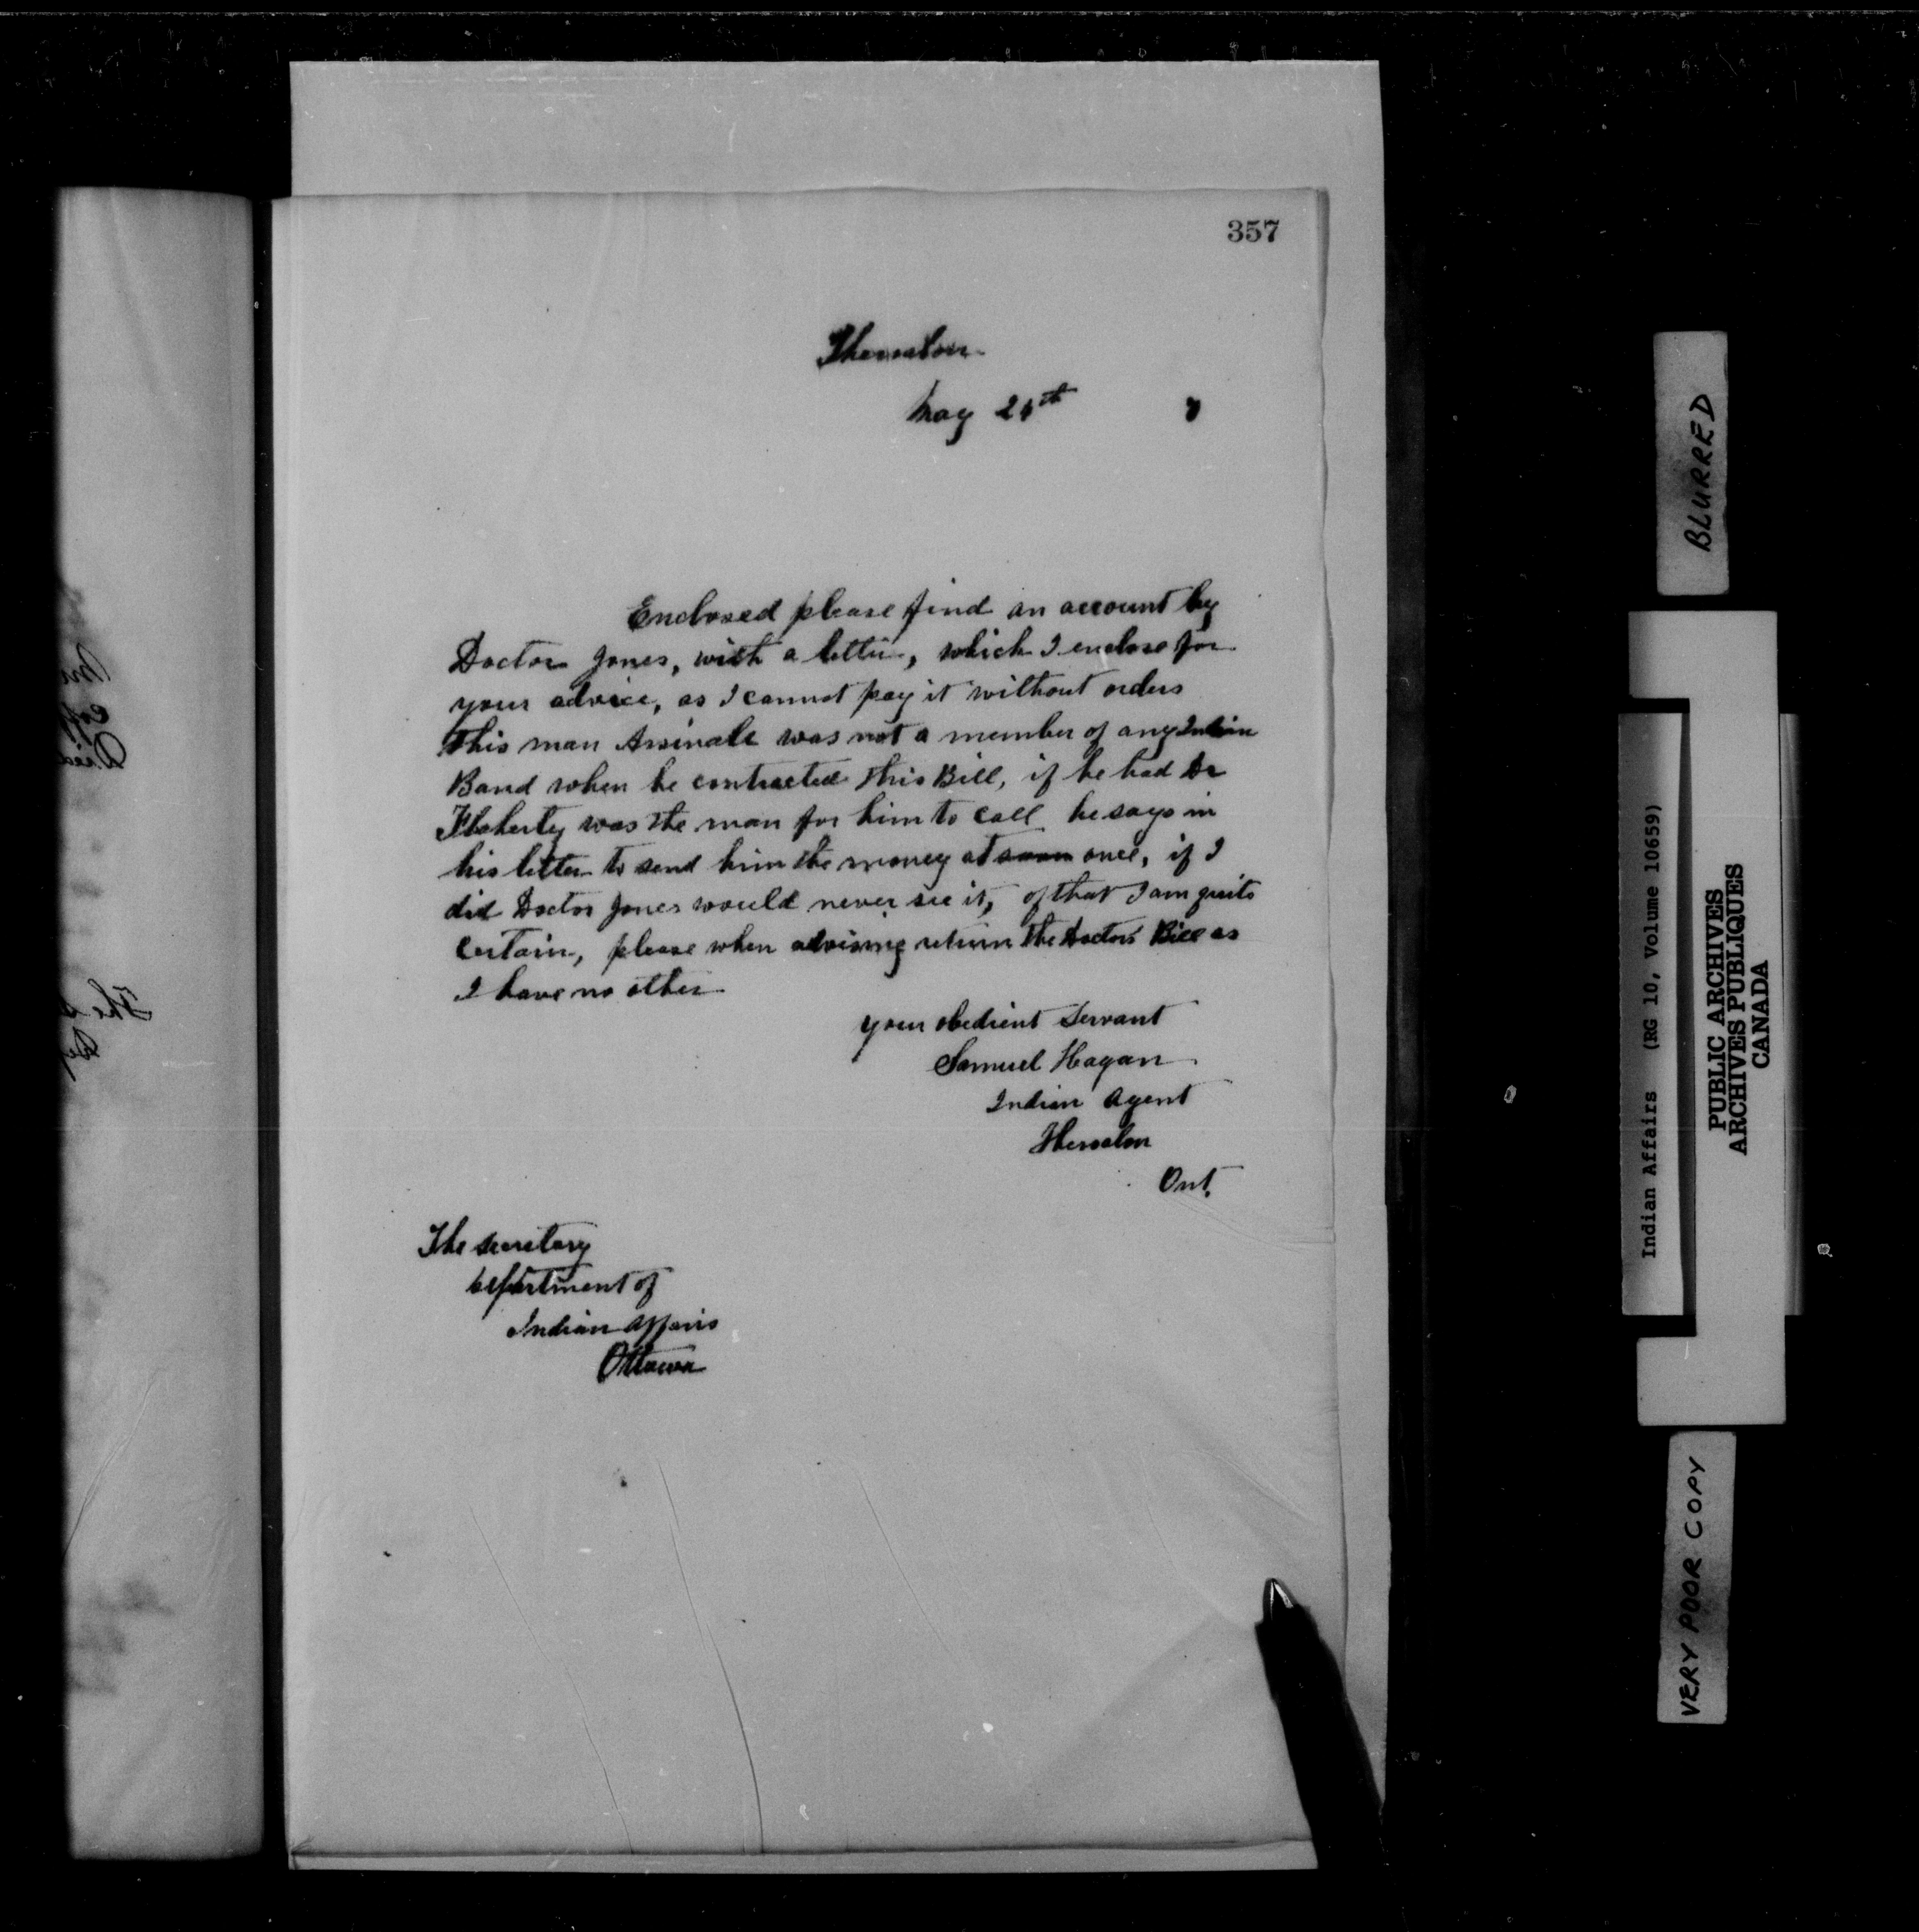 357
Thessalon
May 26th 7
Enclosed please find an account by
Doctor Jones, with a letter, which I enclose for
your advice, as I cannot pay it without orders
This man was not a member of any Indian
Band when he contracted this Bill, if he had Dr
Flaherty was the man for him to call he says in
his letter to send him the money at soon once, if I
did Doctor Jones would never see it, of that I am quite
certain, please when advising return the Doctors Bill as
I have no other
your obedient Servant
Samuel Hagan
Indian Agent
Thessalon
Ont.
The Secretary
Department of
Indian Affairs
Ottawa
BLURRED
Indian Affairs (RG 10, Volume 10659)
PUBLIC ARCHIVES
ARCHIVES PUBLIQUES
CANADA
VERY POOR COPY